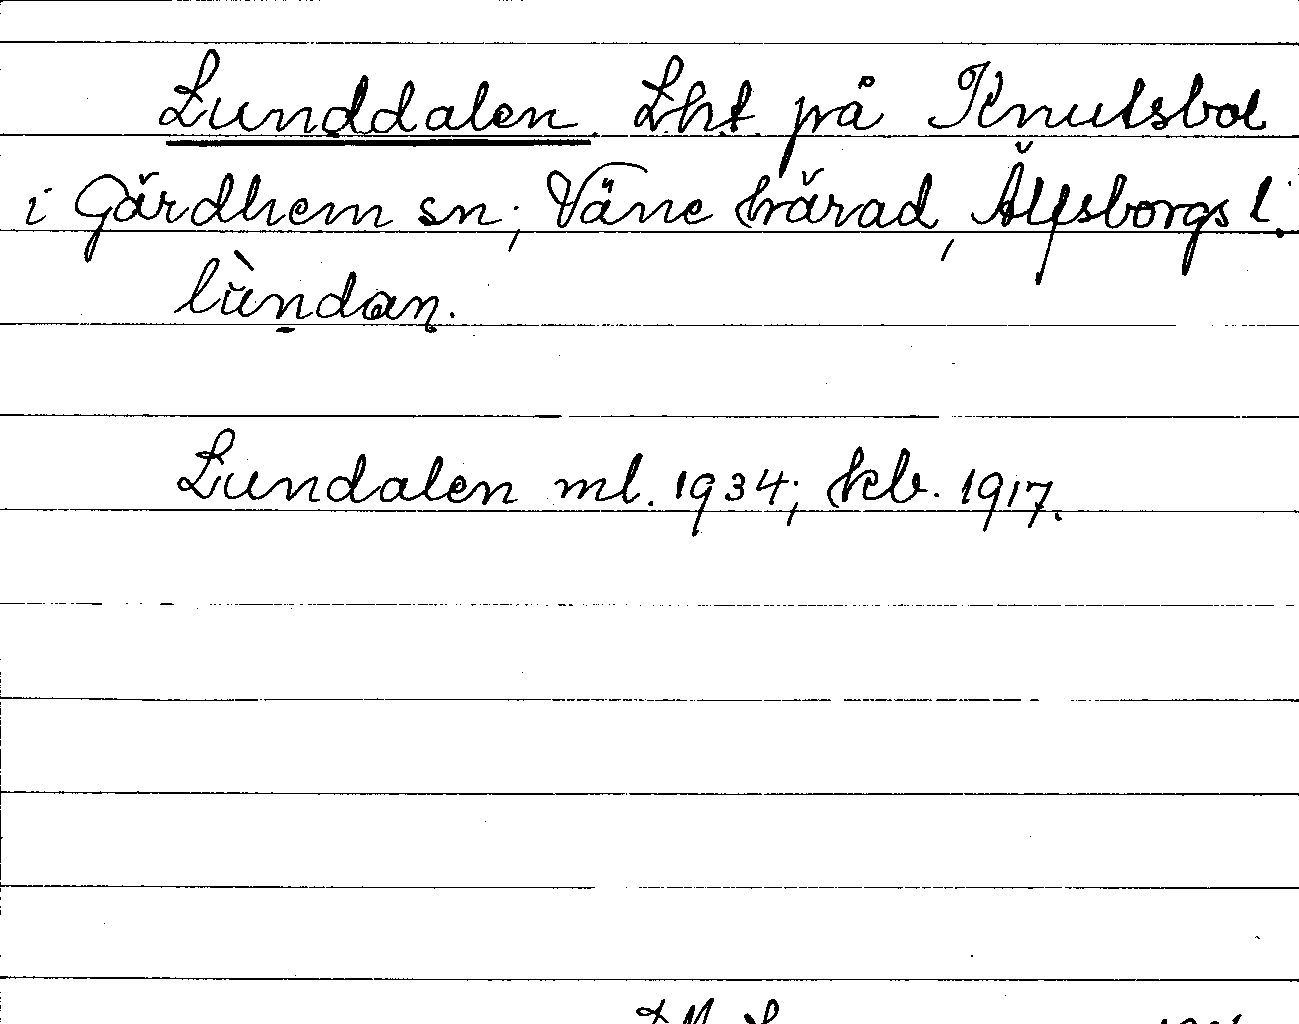 Lunddalen. Lht. på Knutsbol
i Gärdhem sn; Väne härad, Älfsborgs l.
lùndan.
Lundalen ml. 1934; kb. 1917.